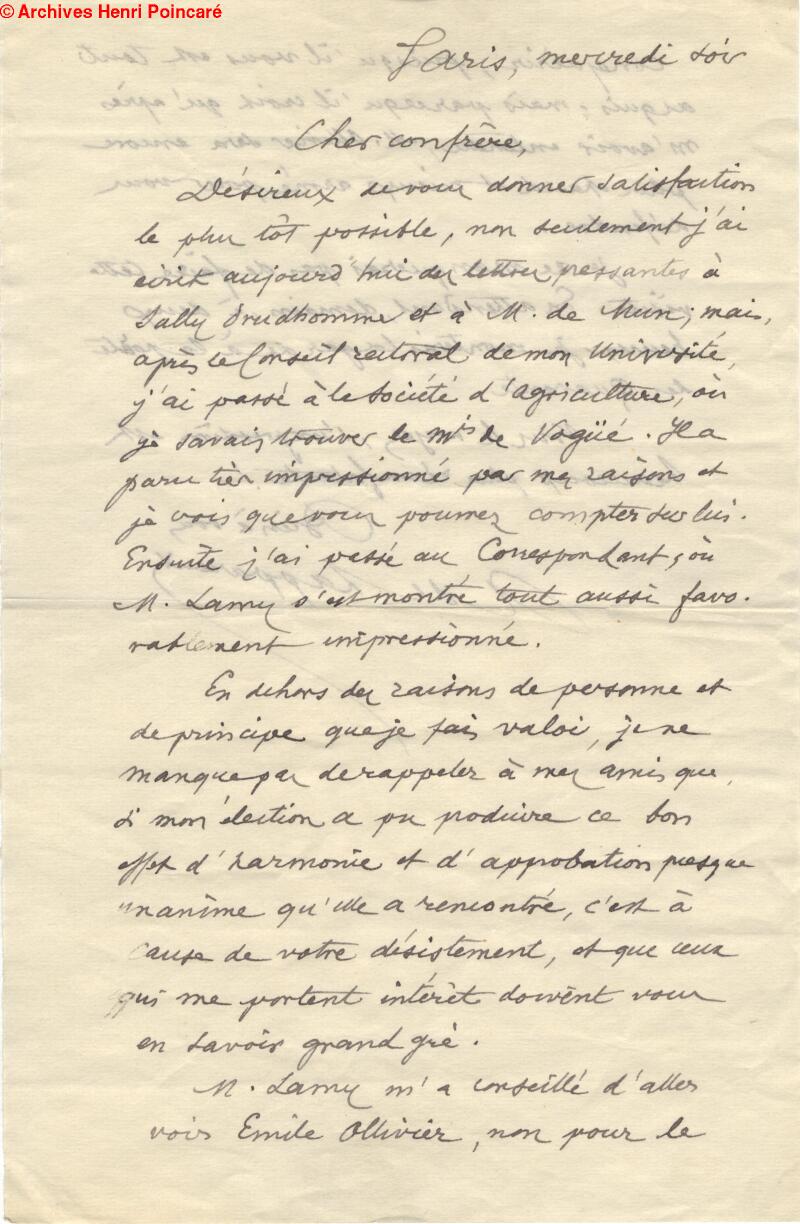 © Archives Henri Poincaré
Paris, mercredi soir
Cher confrère,
Désireux de vous donner satisfaction
le plus tôt possible, non seulement j'ai
écrit aujourd'hui des lettres pressantes à
Sully Prudhomme et à M. de Mun; mais,
après le Conseil rectoral de mon Université,
j'ai passé à la Société d'Agriculture, où
je savais trouver le mis de Vogüé. Il a
paru très impressionné par mes raisons et
je vois que vous pourrez compter sur lui.
Ensuite j'ai passé au Correspondant, où
M. Lamy s'est montré tout aussi favo-
rablement impressionné.
En dehors des raisons de personne et
de principe que je fais valoir, je ne
manque pas de rappeler à mes amis que,
si mon élection a pu produire ce bon
effet d'harmonie et d'approbation presque
unanime qu'elle a rencontré, c'est à
cause de votre désistement, et que ceux
qui me portent intérêt doivent vous
en savoir grand gré.
M. Lamy m'a conseillé d'aller
voir Emile Ollivier, non pour le